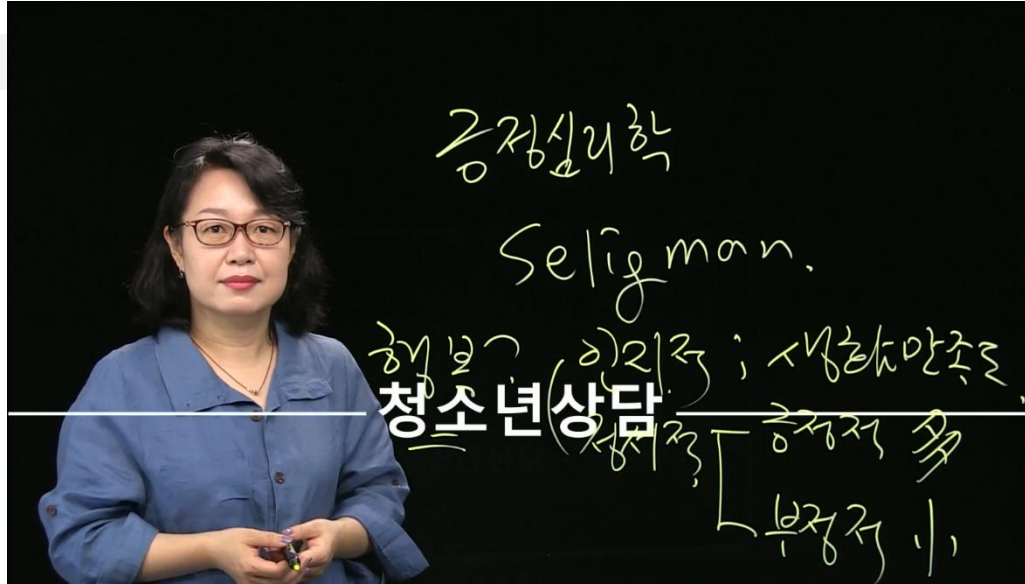 긍정심리학
Seligman.
행복? 인지적 ; 생활만족도
청소년상담
정서적 긍정적 多
부정적 小